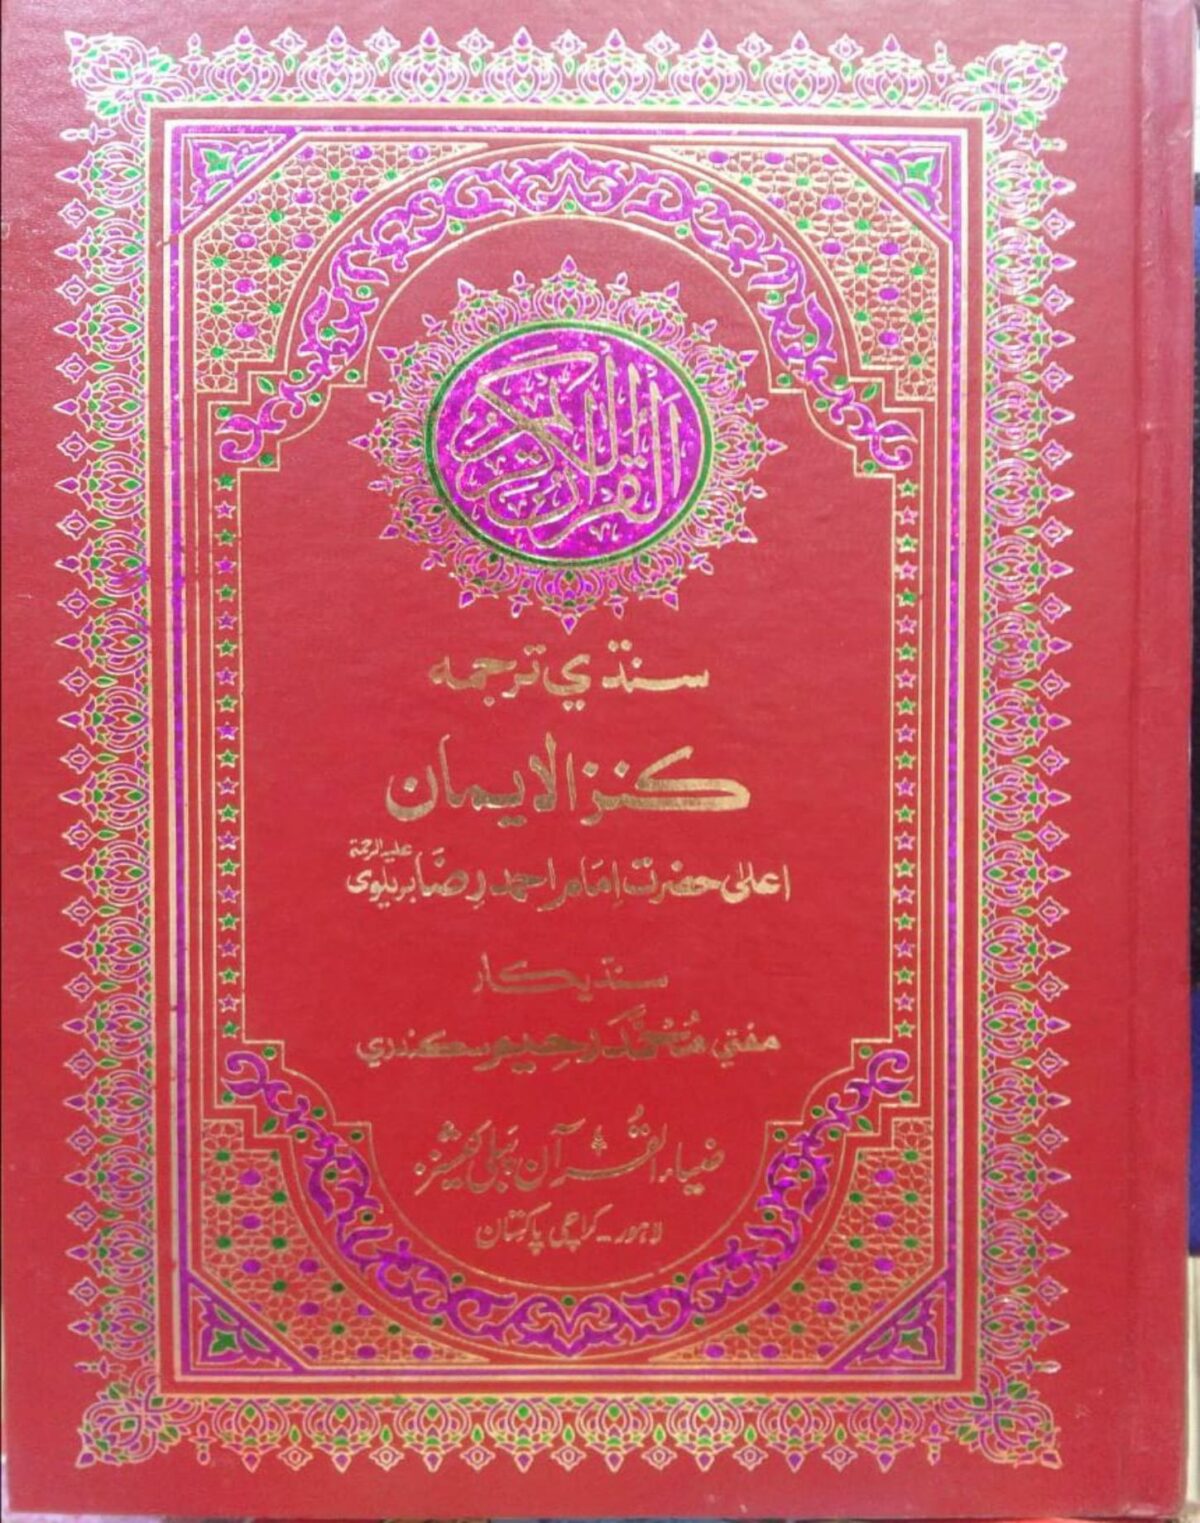 القرآن الكريم
سنڌي ترجمه
ڪنزالايمان
اعلیٰ حضرت امام احمد رضا بریلوی علیہ الرحمۃ
سنڌيڪار
مفتي محمد رحيم سڪندري
ضیاءالقرآن پبلی کیشنز
لاہور - کراچی پاکستان